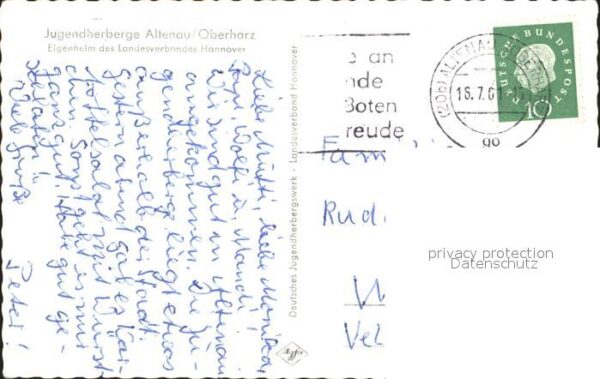 Jugendherberge Altenau/Oberharz
Eigenheim des Landesverbnndes Hannover
Liebe Mutti, liebe Monika,
Papi, Wölfi u. Mandi!
Wir sind gut in Altenau
angekommen. Die Ju-
gendherberge liegt etwas
außerhalb der Stadt.
Gestern abend gab es Kar-
toffelsalat mit Wurst
Sonst geht es mir
ganz gut. Habe gut ge-
schlafen.
Viele Grüße
Peter!
Deutsches Jugendherbergswerk - Landesverband Hannover
Agfa
e an
nde
Boten
reude
(20b) ALTENAU
16.7.60
go
DEUTSCHE BUNDESPOST
10
Fam
Rud.
W
Vel
privacy protection
Datenschutz